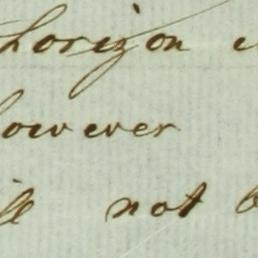 horizon
however
not